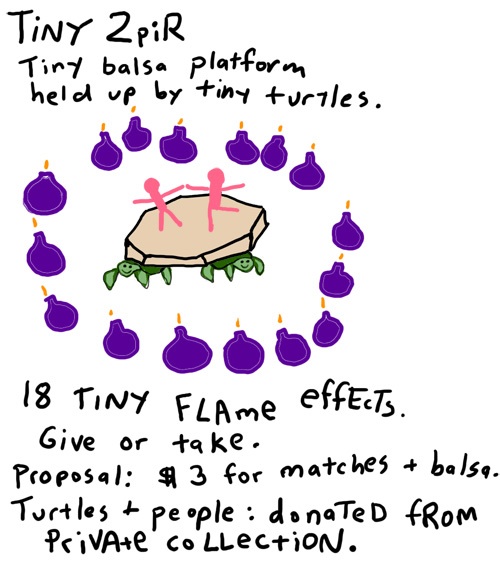 TiNY 2piR
Tiny balsa platform
held up by tiny turtles.
18 TiNY FLAme effEcTs.
Give or take.
Proposal: $3 for matches + balsa.
Turtles + people: donaTED fRom
PRiVAte coLLEcTiON.